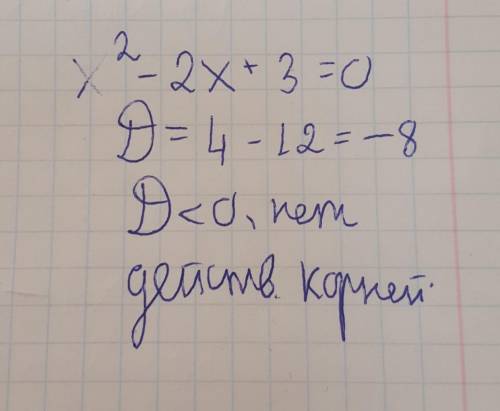 x² - 2x + 3 = 0
D = 4 - 12 = -8
D < 0, нет
действ. корней.